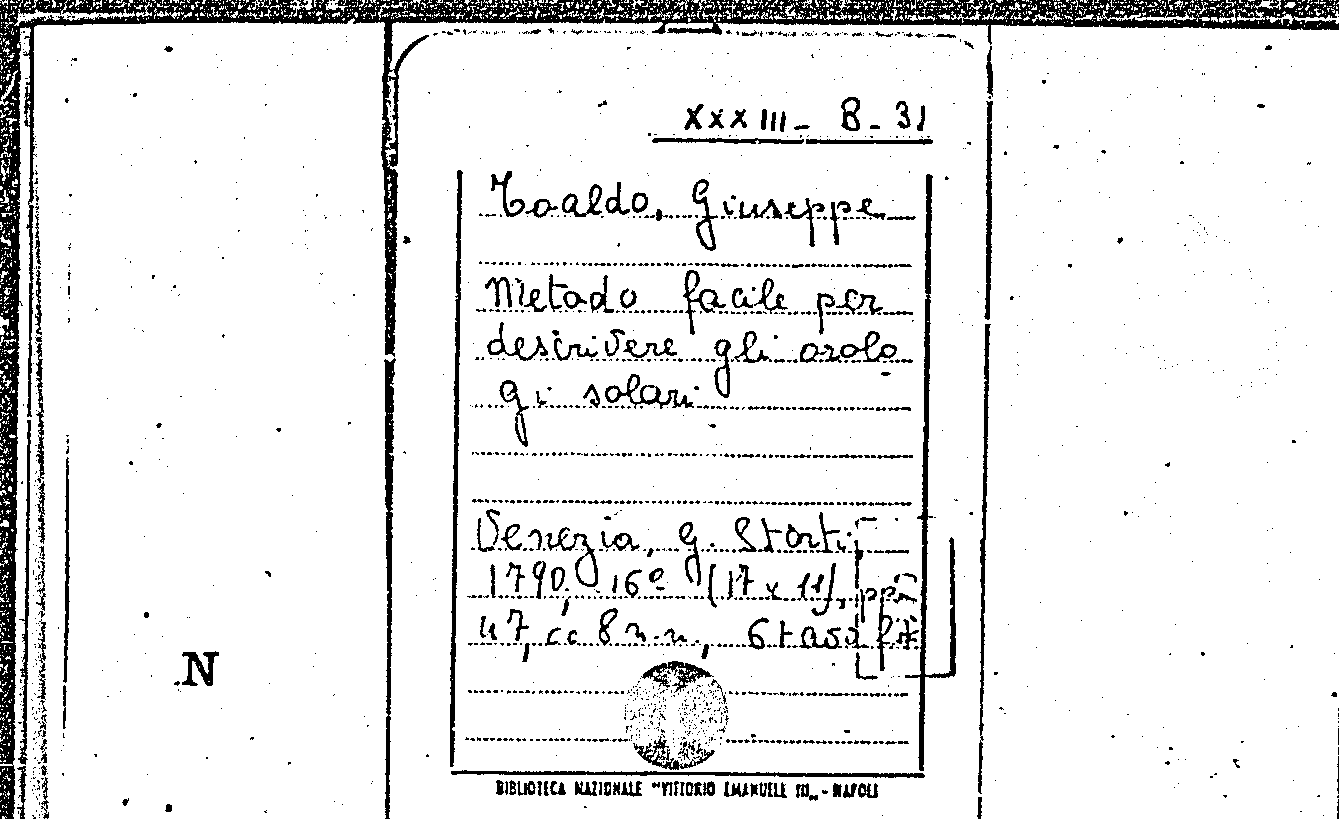 XXXIII - B - 31
Toaldo, Giuseppe
Metodo facile per
descrivere gli orolo
gi solari
Venezia, G. Storti,
1790, 16º (17 x 11), pp.
47, cc 8 n.n., 6 tav.
N
BIBLIOTECA NAZIONALE "VITTORIO EMANUELE III„ - NAPOLI